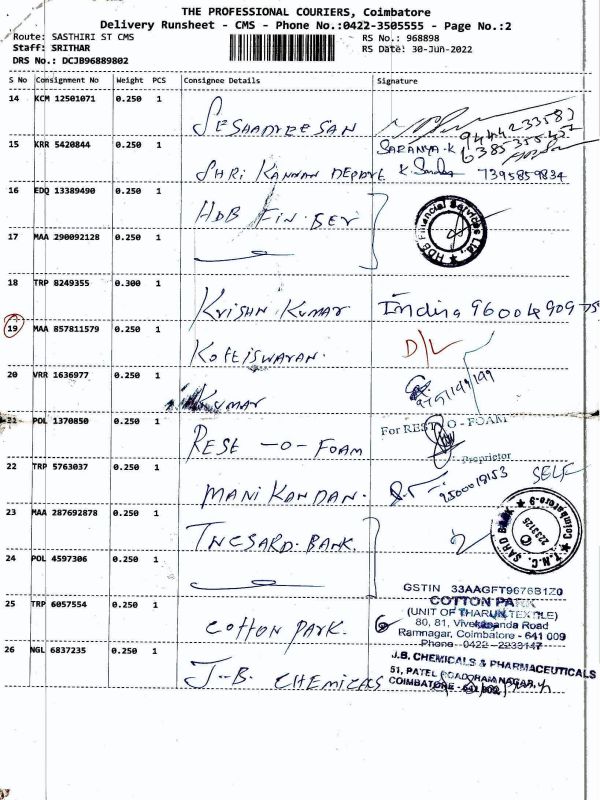 THE PROFESSIONAL COURIERS, Coimbatore
Delivery Runsheet - CMS - Phone No.:0422-3505555 - Page No.:2
Route: SASTHIRI ST CMS
RS No.: 968898
Staff: SRITHAR
RS Date: 30-Jun-2022
DRS No.: DCJB96889802
S No Consignment No Weight PCS Consignee Details Signature
14 KCM 12501071 0.250 1 SESHADREESAN
9444233583
15 KRR 5420844 0.250 1 SHRI KANNAN DEPOT SARANYA.K 6385355452
K. 7395859834
16 EDQ 13389490 0.250 1 HDB FIN.SER
HDB Financial Services Ltd.
17 MAA 290092128 0.250 1
18 TRP 8249355 0.300 1 Krishn Kumar Indira 9600490975
19 MAA 857811579 0.250 1 Koteiswaran. D/L
20 VRR 1636977 0.250 1 Kumar
21 POL 1370850 0.250 1 REST-O-FOAM For REST-O-FOAM
Proprietor
22 TRP 5763037 0.250 1 MANI KANDAN. 9500018153 SELF
23 MAA 287692878 0.250 1 TNCSARD.BANK.
T.N.C. SARD BANK Coimbatore-9
2233125
24 POL 4597306 0.250 1
25 TRP 6057554 0.250 1 COTTON PARK.
GSTIN 33AAGFT9676B1Z0
COTTON PARK
(UNIT OF THARUN TEXTILE)
80, 81, Vivekananda Road
Ramnagar, Coimbatore - 641 009
Phone 0422 - 2233147
26 NGL 6837235 0.250 1 J.B. CHEMICALS
J.B. CHEMICALS & PHARMACEUTICALS
51, PATEL ROAD, RAM NAGAR,
COIMBATORE - 641 009.